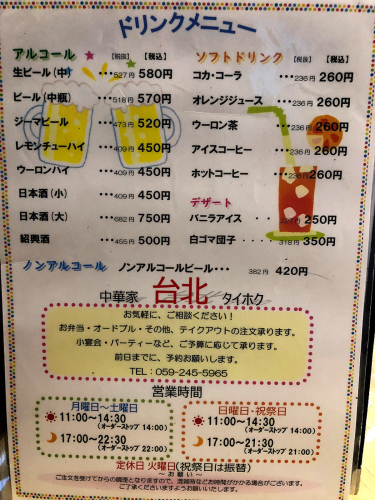 ドリンクメニュー
アルコール 【税抜】 【税込】
生ビール(中) ・・・527円 580円
ビール(中瓶) ・・・518円 570円
ジーマビール ・・・473円 520円
レモンチューハイ ・・・409円 450円
ウーロンハイ ・・・409円 450円
日本酒(小) ・・・409円 450円
日本酒(大) ・・・682円 750円
紹興酒 ・・・455円 500円
ソフトドリンク 【税抜】 【税込】
コカ・コーラ ・・・236円 260円
オレンジジュース ・・・236円 260円
ウーロン茶 ・・・236円 260円
アイスコーヒー ・・・236円 260円
ホットコーヒー ・・・236円 260円
デザート
バニラアイス ・・・ 250円
白ゴマ団子 ・・・・318円 350円
ノンアルコール ノンアルコールビール・・・ 382円 420円
中華家 台北 タイホク
お気軽に、ご相談ください!
お弁当・オードブル・その他、テイクアウトの注文承ります。
小宴会・パーティーなど、ご予算に応じて承ります。
前日までに、予約お願いします。
TEL:059-245-5965
営業時間
月曜日~土曜日
11:00~14:30
(オーダーストップ 14:00)
17:00~22:30
(オーダーストップ 22:00)
日曜日・祝祭日
11:00~14:30
(オーダーストップ 14:00)
17:00~21:30
(オーダーストップ 21:00)
定休日 火曜日(祝祭日は振替)
~お願い~
ご注文を受けてからの調理となりますので、混雑時などお時間がかかる場合がございます。
ご了承くださいますようお願いいたします。